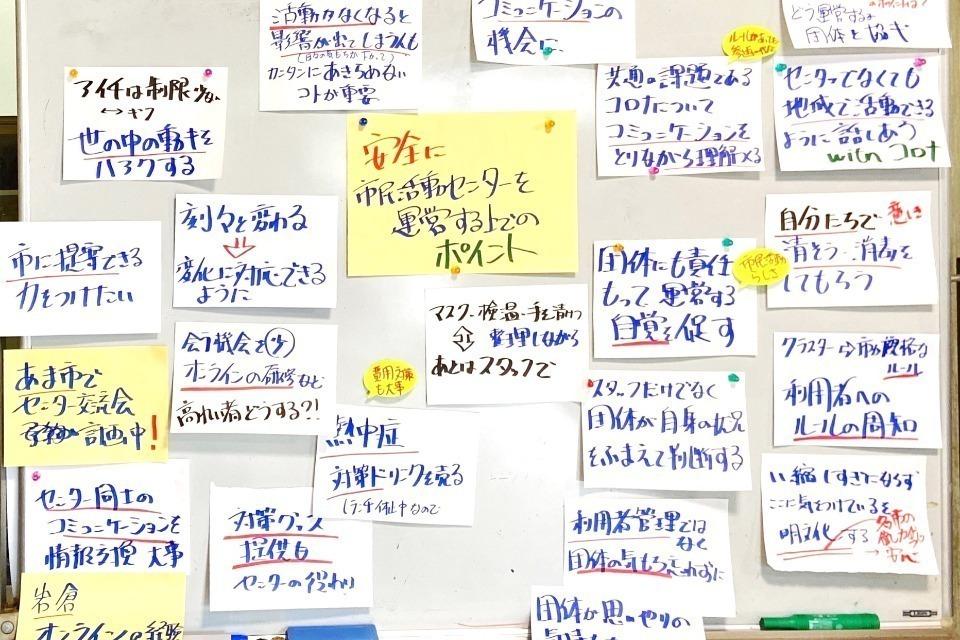 活動がなくなると
影響が出てしまう人も
カンタンにあきらめない
コトが重要
コミュニケーションの
機会に
どう運営するか
団体と協議
アイチは制限少ない
↔ ギフ
世の中の動きを
ハアクする
安全に
市民活動センターを
運営する上での
ポイント
共通の課題である
コロナについて
コミュニケーションを
とりながら理解×る
センターでなくても
地域で活動できる
ように話しあう
with コロナ
市に提案できる
力をつけたい
刻々と変わる
変化に対応できる
ように
マスク・検温・手を清けつ
整理しながら
あとはスタッフで
団体にも責任
もって運営する
自覚を促す
市民活動
らしさ
自分たちで
意しき
清そう・消毒を
してもらう
あま市で
センター交流会
計画中!
会う機会を少
オンラインの研修など
高れい者どうする?!
費用対策
も大事
熱中症
対策ドリンクを売る
(ランチ休止中なので
スタッフだけでなく
団体が自身の状況
をふまえて判断する
クラスター⇨市の厳格な
ルール
利用者への
ルールの周知
センター同士の
コミュニケーションを
情報交換 大事
対策グッズ
提供も
センターの役わり
利用者管理では
なく
団体の気もち忘れずに
い縮しすぎにならず
ここに気をつけているを
明文化する
岩倉
オンラインの経験
団体が思いやりの